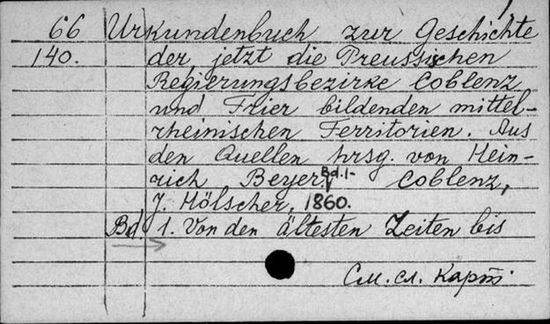 66 Urkundenbuch zur Geschichte
140. der jetzt die Preussischen
Regierungsbezirke Coblenz
und Trier bildenden mittel-
rheinischen Territorien. Aus
den Quellen hrsg. von Hein-
rich Beyer. Bd. 1- Coblenz,
J. Hölscher, 1860.
Bd 1. Von den ältesten Zeiten bis
См. сл. карт.